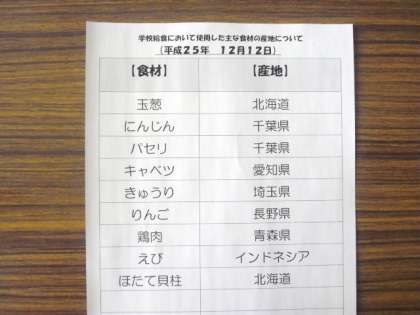 学校給食において使用した主な食材の産地について
(平成25年 12月12日)
【食材】 【産地】
玉葱 北海道
にんじん 千葉県
パセリ 千葉県
キャベツ 愛知県
きゅうり 埼玉県
りんご 長野県
鶏肉 青森県
えび インドネシア
ほたて貝柱 北海道